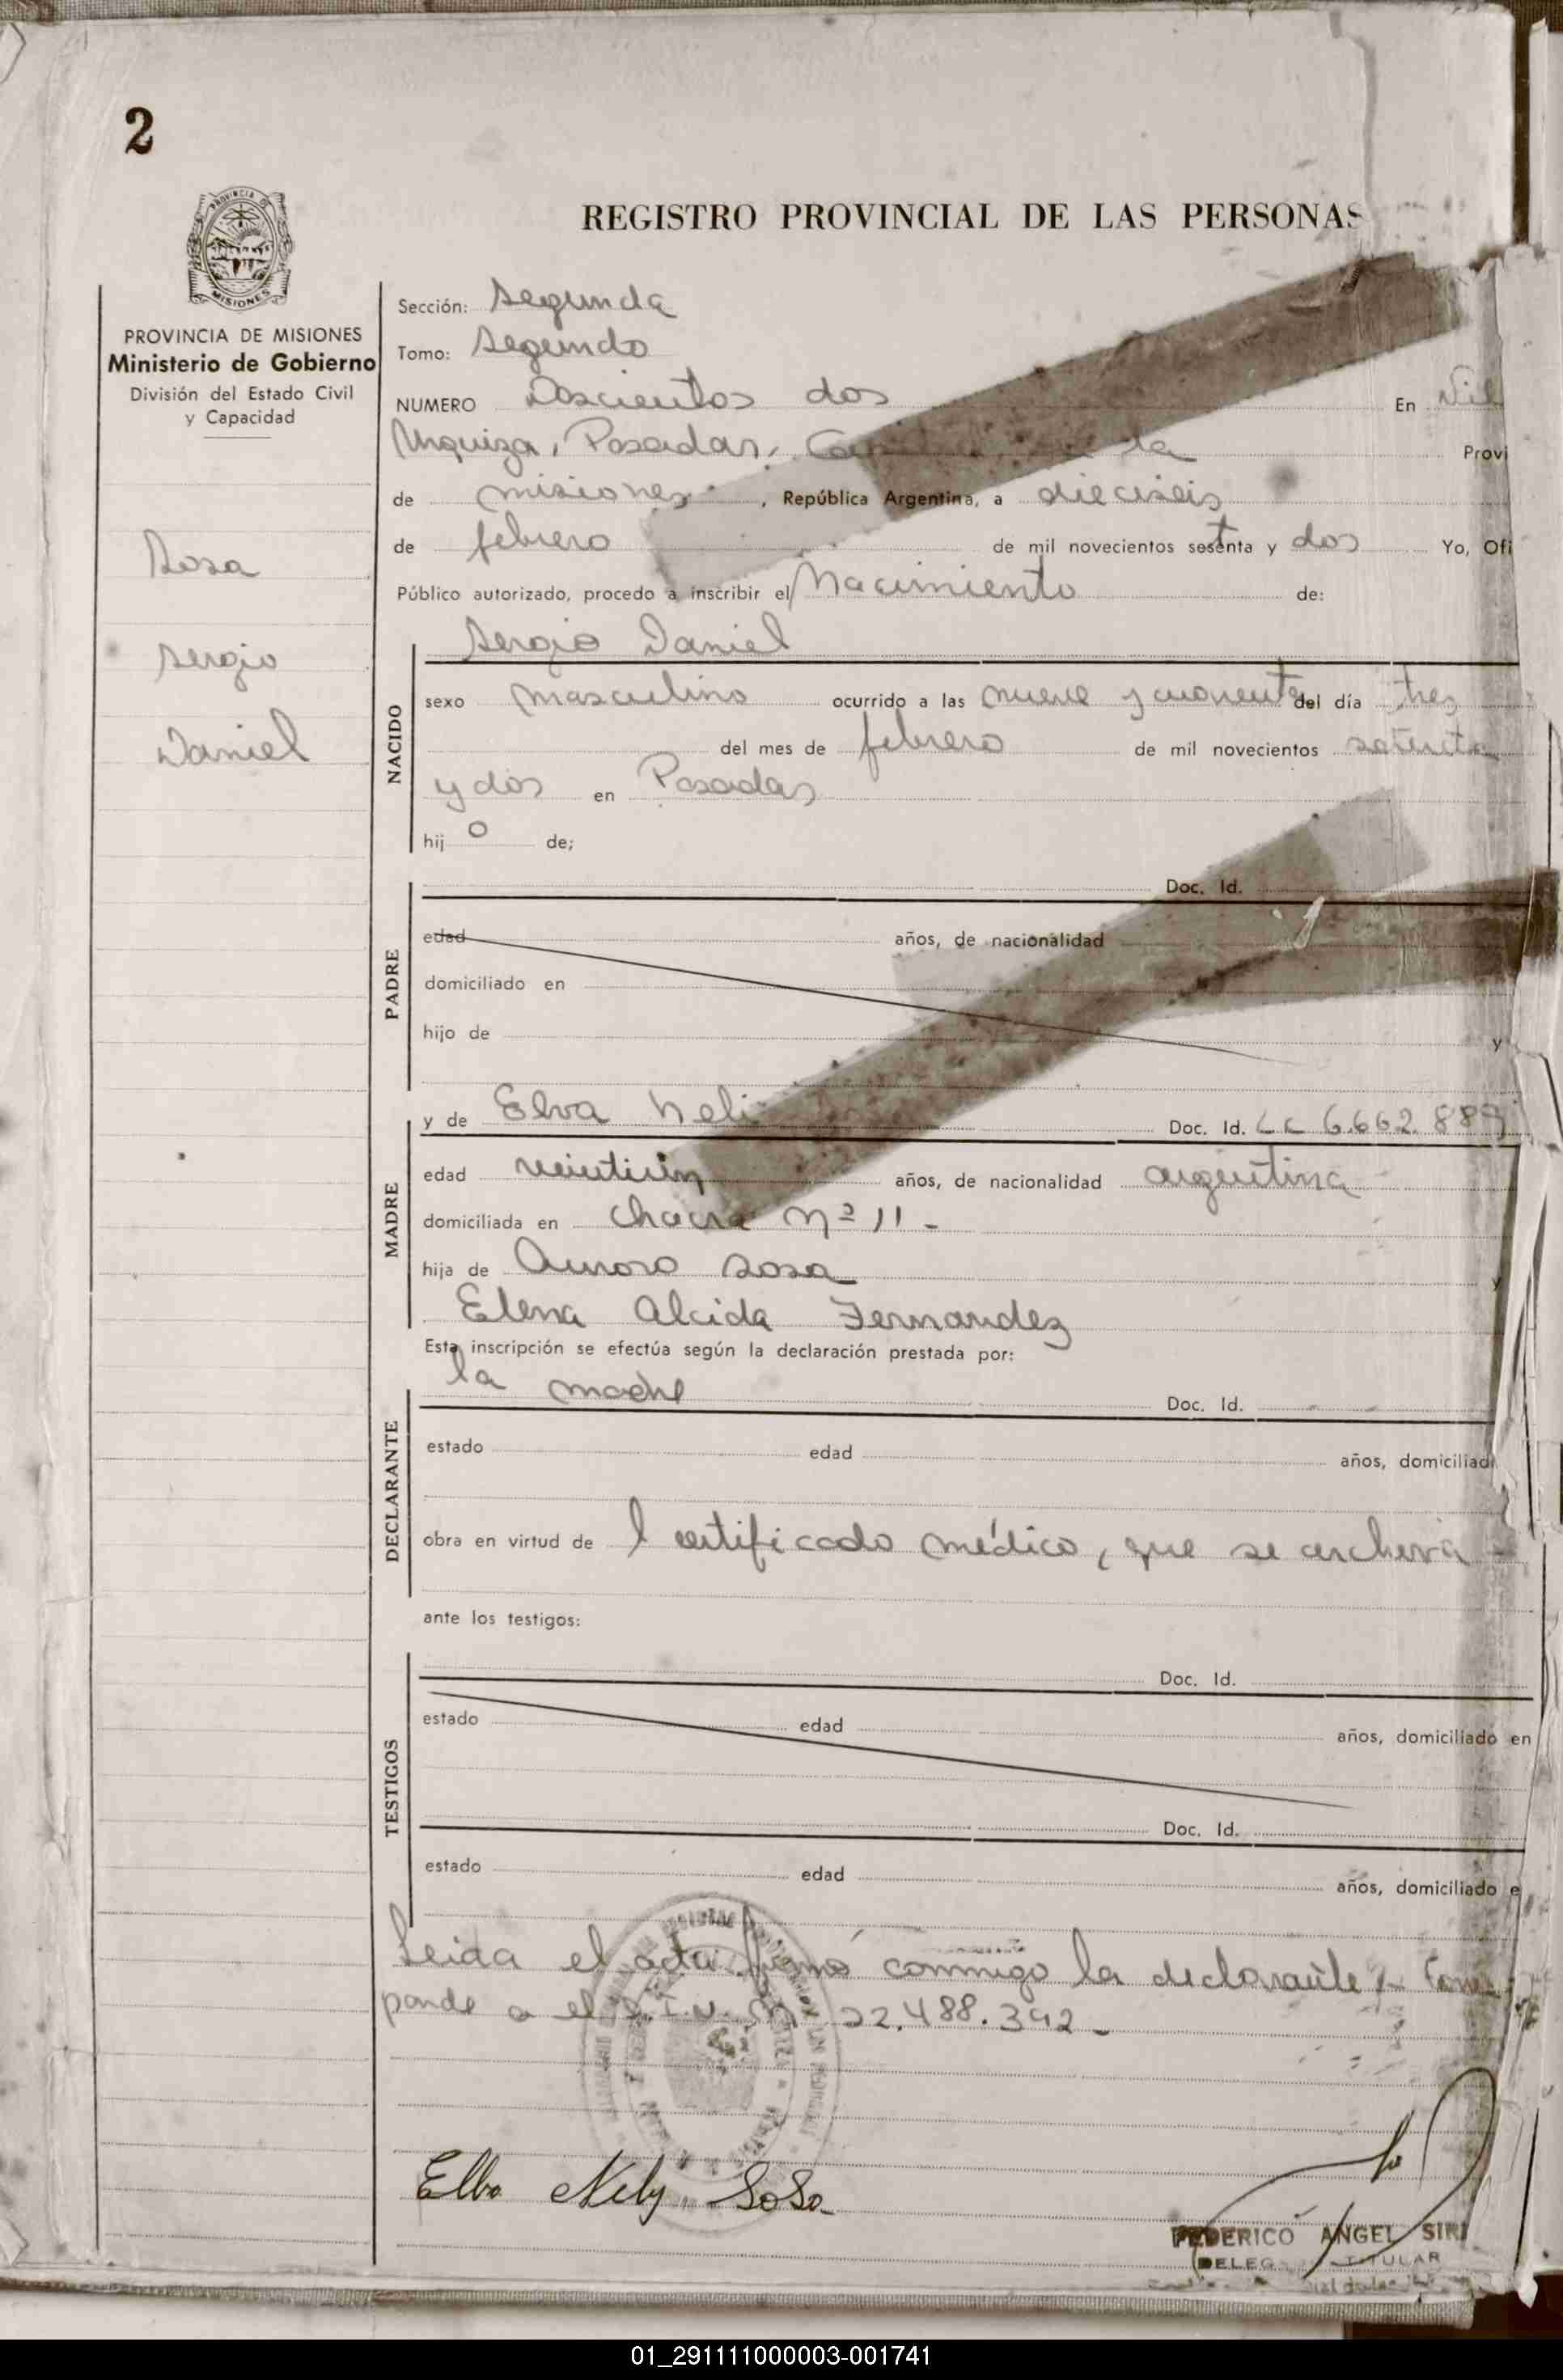 2
REGISTRO PROVINCIAL DE LAS PERSONAS
PROVINCIA DE MISIONES
Ministerio de Gobierno
División del Estado Civil
y Capacidad
Sosa
Sergio
Daniel
Sección: Segunda
Tomo: Segundo
NUMERO Doscientos dos En
Urquiza, Posadas, la Provi
de misiones, República Argentina, a dieciseis
de febrero de mil novecientos setenta y dos Yo, Ofi
Público autorizado, procedo a inscribir el Nacimiento de:
NACIDO
Sergio Daniel
sexo masculino ocurrido a las nueve y cuarenta del día tres
del mes de febrero de mil novecientos setenta
y dos en Posadas
hijo de;
PADRE
Doc. Id.
edad años, de nacionalidad
domiciliado en
hijo de y
MADRE
y de Elva Doc. Id. LC 6.662.889
edad veintiún años, de nacionalidad argentina
domiciliada en chacra nº 11 -
hija de Sosa y
Elena Alcida Fernandez
Esta inscripción se efectúa según la declaración prestada por:
DECLARANTE
la madre Doc. Id.
estado edad años, domiciliad
obra en virtud de l certificado médico, que se archiva -
ante los testigos:
TESTIGOS
Doc. Id.
estado edad años, domiciliado en
Doc. Id.
estado edad años, domiciliado e
Leida el acta firmó conmigo la declarante.- Corres
ponde a el 22.488.392 -
Elba Nely Sosa
FEDERICO ANGEL SIRI
DELEG. TITULAR
01_291111000003-001741